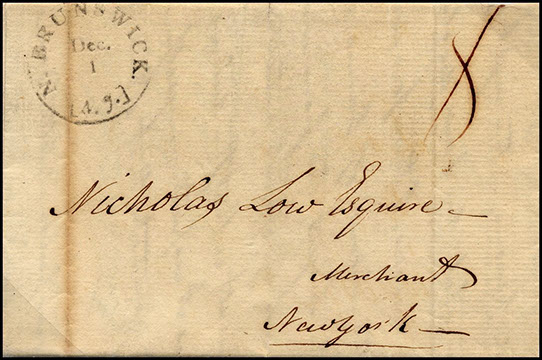 N. BRUNSWICK.
Dec.
1
[J. J.]
8
Nicholas Low Esquire
Merchant
New York